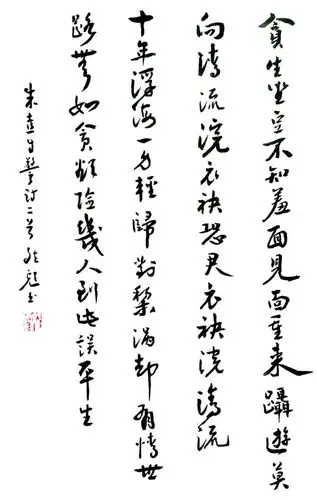 貪生坐豆不知羞面見面重来躡遊莫
向清流浣衣袂恐君衣袂浼清流
十年浮海一身輕歸對梨渦却有情世
路無如貪欲險幾人到此誤平生
朱熹自警詩二首 書